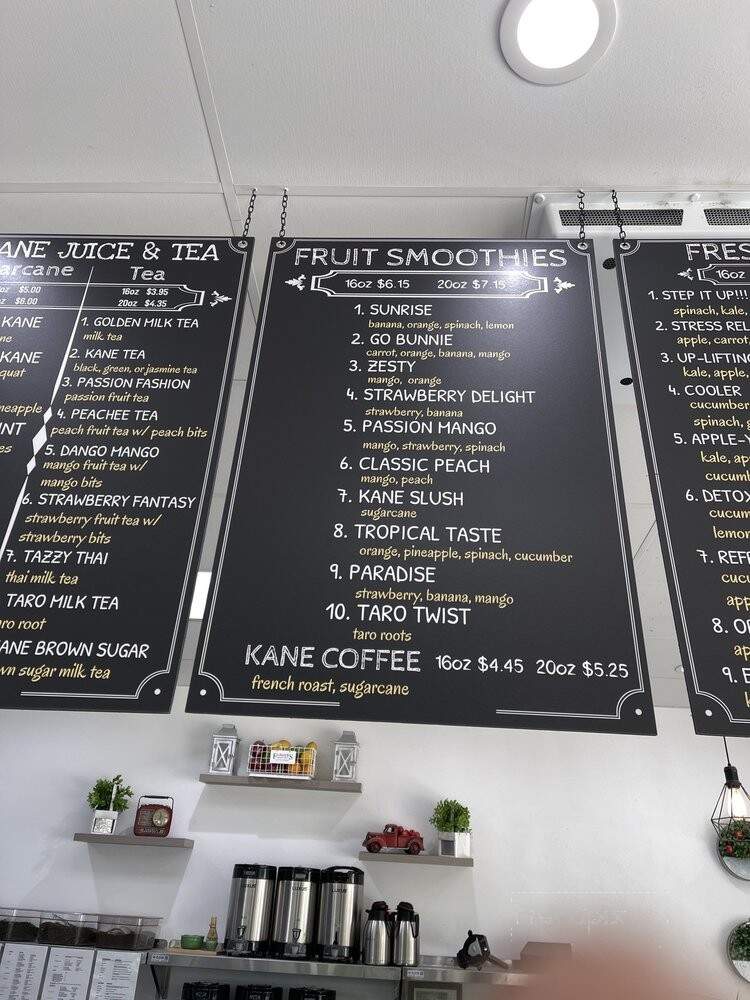 ANE JUICE & TEA
arcane Tea
oz $5.00
oz $6.00
16oz $3.95
20oz $4.35
KANE
ne
KANE
quat
neapple
INT
es
1. GOLDEN MILK TEA
milk tea
2. KANE TEA
black, green, or jasmine tea
3. PASSION FASHION
passion fruit tea
4. PEACHEE TEA
peach fruit tea w/ peach bits
5. DANGO MANGO
mango fruit tea w/
mango bits
6. STRAWBERRY FANTASY
strawberry fruit tea w/
strawberry bits
7. TAZZY THAI
thai milk tea
TARO MILK TEA
aro root
KANE BROWN SUGAR
wn sugar milk tea
FRUIT SMOOTHIES
16oz $6.15 20oz $7.15
1. SUNRISE
banana, orange, spinach, lemon
2. GO BUNNIE
carrot, orange, banana, mango
3. ZESTY
mango, orange
4. STRAWBERRY DELIGHT
strawberry, banana
5. PASSION MANGO
mango, strawberry, spinach
6. CLASSIC PEACH
mango, peach
7. KANE SLUSH
sugarcane
8. TROPICAL TASTE
orange, pineapple, spinach, cucumber
9. PARADISE
strawberry, banana, mango
10. TARO TWIST
taro roots
KANE COFFEE 16oz $4.45 20oz $5.25
french roast, sugarcane
FRES
16oz
1. STEP IT UP!!!
spinach, kale,
2. STRESS REL
apple, carrot,
3. UP-LIFTING
kale, apple,
4. COOLER
cucumber
spinach, g
5. APPLE-
kale, app
cucumb
6. DETOX
cucum
lemon
7. REF
cucu
app
8. O
ap
9. E
LUXUS
LUXUS
LUXUS